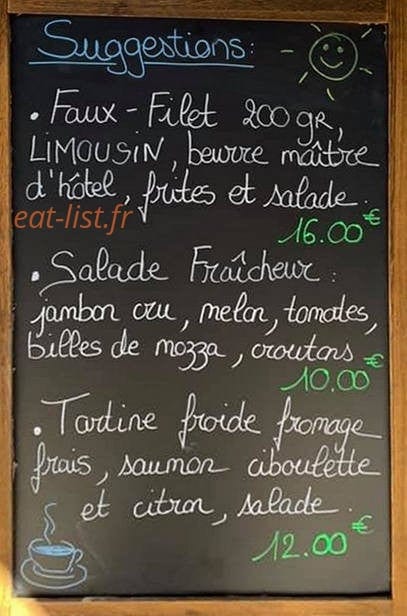 Suggestions:
• Faux-Filet 200 gR,
LIMOUSIN, beurre maître
d'hôtel, frites et salade.
eat-list.fr
16.00€
• Salade Fraîcheur:
jambon cru, melon, tomates,
billes de mozza, croutons
10.00€
• Tartine froide fromage
frais, saumon ciboulette
et citron, salade.
12.00€